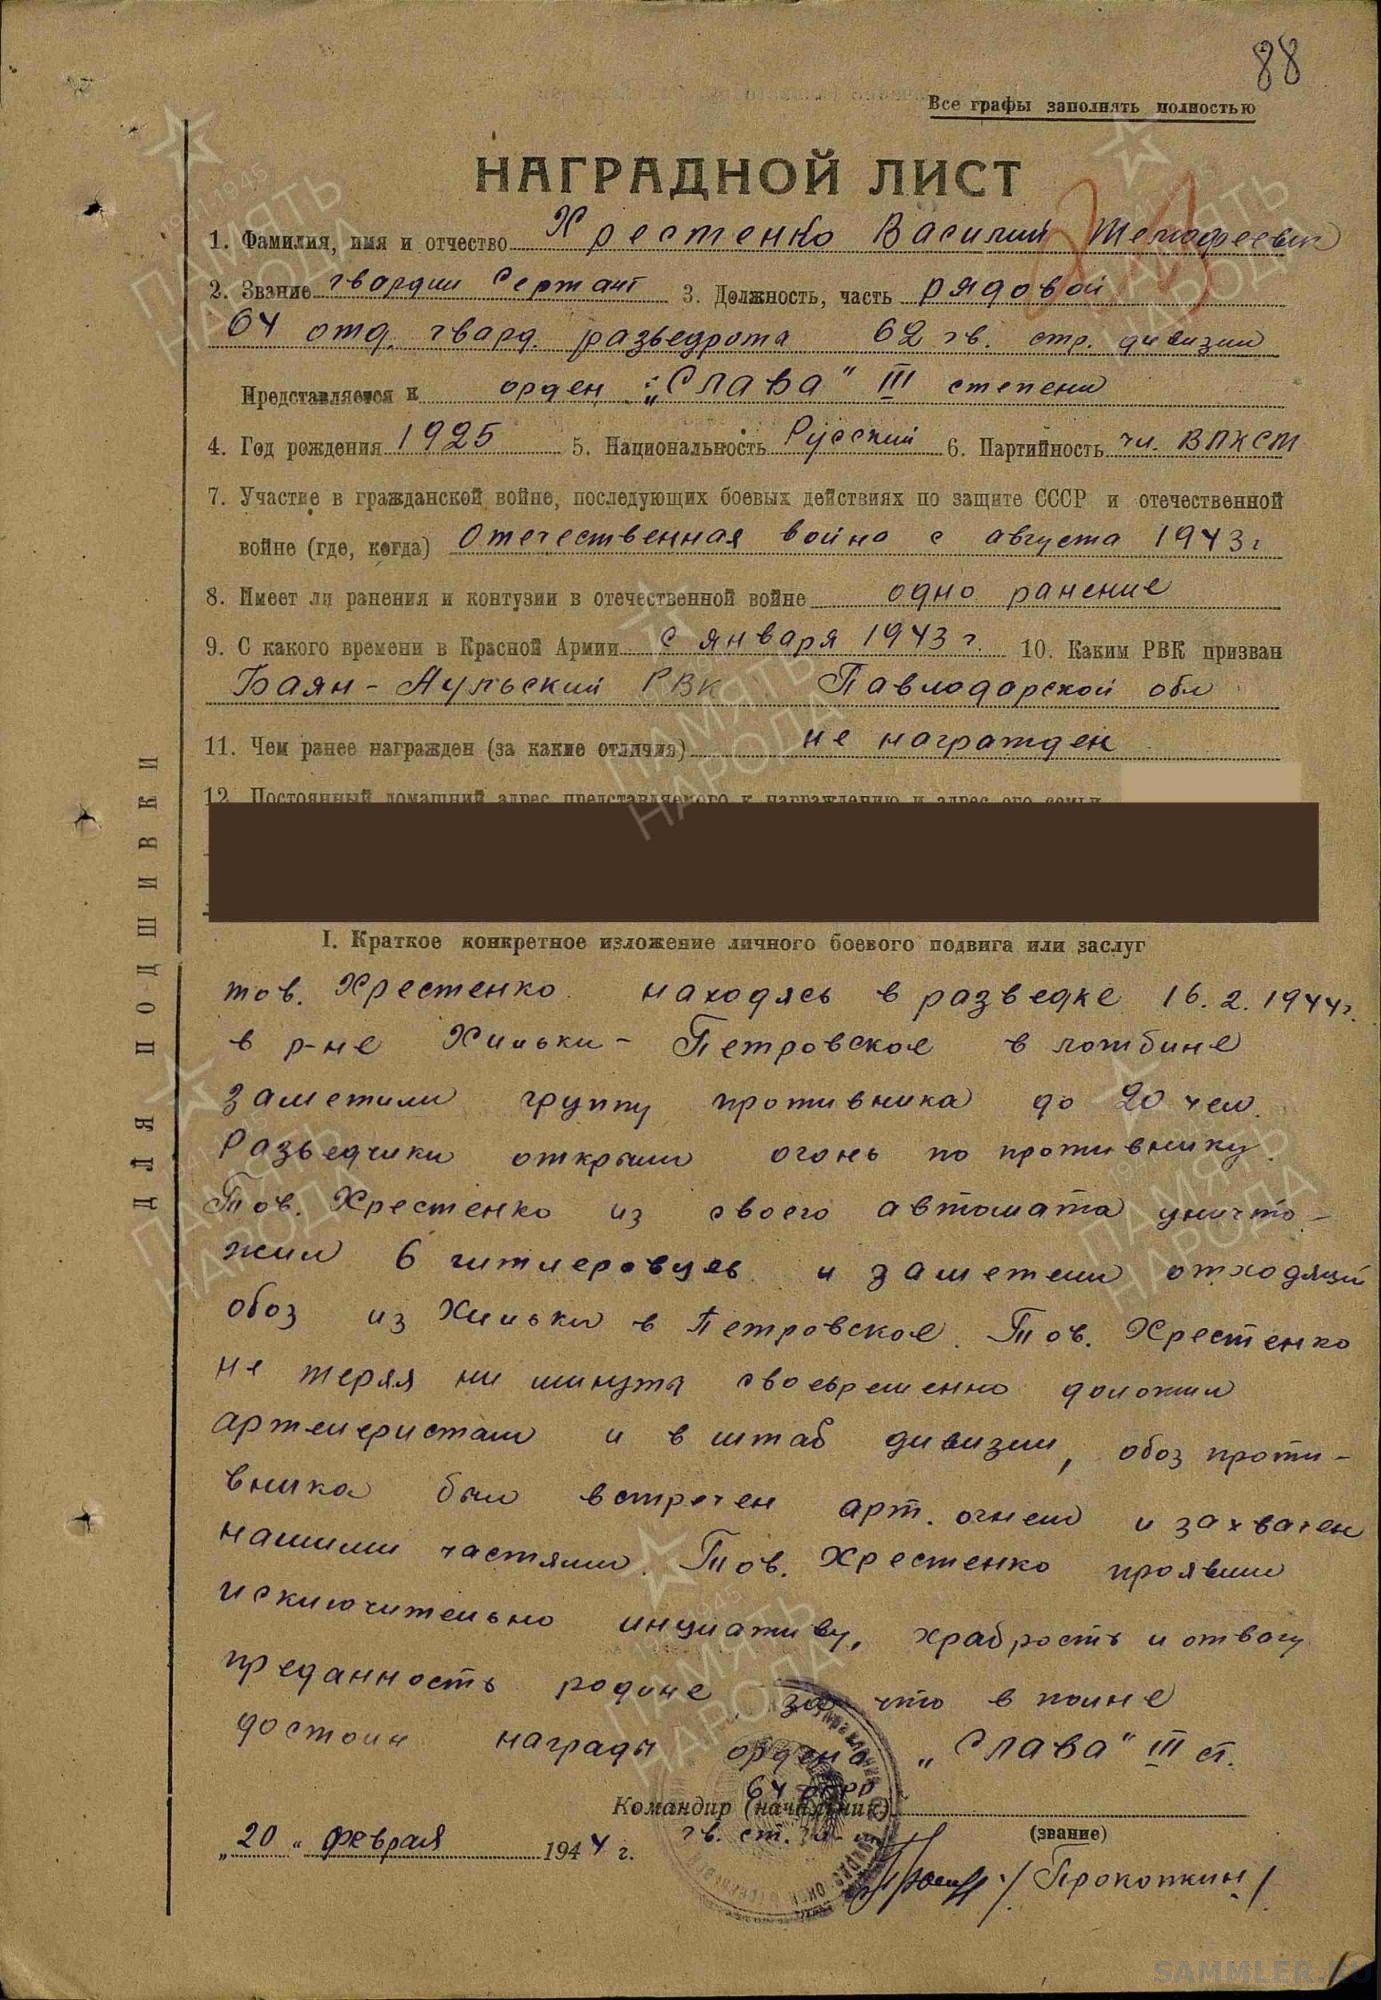 88
Все графы заполнять полностью
НАГРАДНОЙ ЛИСТ
1. Фамилия, имя и отчество Хрестенко Василий Тимофеевич
2. Звание гвардии Сержант 3. Должность, часть рядовой
64 отд. гвард. разведрота 62 гв. стр. дивизии
Представляется к орден „Слава" III степени
4. Год рождения 1925 5. Национальность Русский 6. Партийность чл. ВЛКСМ
7. Участие в гражданской войне, последующих боевых действиях по защите СССР и отечественной
войне (где, когда) Отечественная война с августа 1943 г
8. Имеет ли ранения и контузии в отечественной войне одно ранение
9. С какого времени в Красной Армии с января 1943 г. 10. Каким РВК призван
Баян-Аульский РВК Павлодарской обл
11. Чем ранее награжден (за какие отличия) не награжден
12. Постоянный домашний адрес представляемого к награждению и адрес его семьи
I. Краткое конкретное изложение личного боевого подвига или заслуг
тов. Хрестенко находясь в разведке 16.2.1944г.
в р-не Хильки - Петровское в ложбине
заметили группу противника до 20 чел.
Разведчики открыли огонь по противнику.
Тов. Хрестенко из своего автомата уничто-
жил 6 гитлеровцев и заметели отходящий
обоз из Хильки в Петровское. Тов. Хрестенко
не теряя ни минуты своевременно доложил
артилеристам и в штаб дивизии, обоз проти-
вника был встречен арт. огнем и захвачен
нашими частями. Тов. Хрестенко проявил
исключительно инциативу, храбрость и отвагу
преданность родине за что в полне
достоин награды ордена „Слава" III ст.
Командир (начальник)
гв. ст.
(звание)
„20" февраля 1944 г.
/Прокопкин/
ДЛЯ ПОДШИВКИ
ПАМЯТЬ НАРОДА
1941-1945
SAMMLER.RU